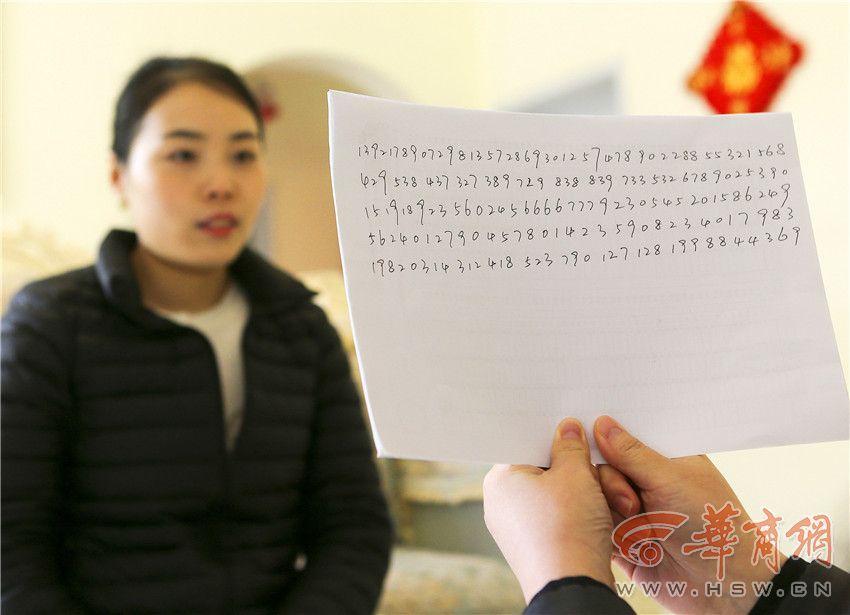 139217890729813572869301257478902288 55321568
429 538 437 327 389 729 838 839 733 532 6789025390
151918923 560245666677792305452015862 49
56240127904578014235908234017983
198203143124 18 523 790 127 128 1998844369
福
華商網
WWW.HSW.CN